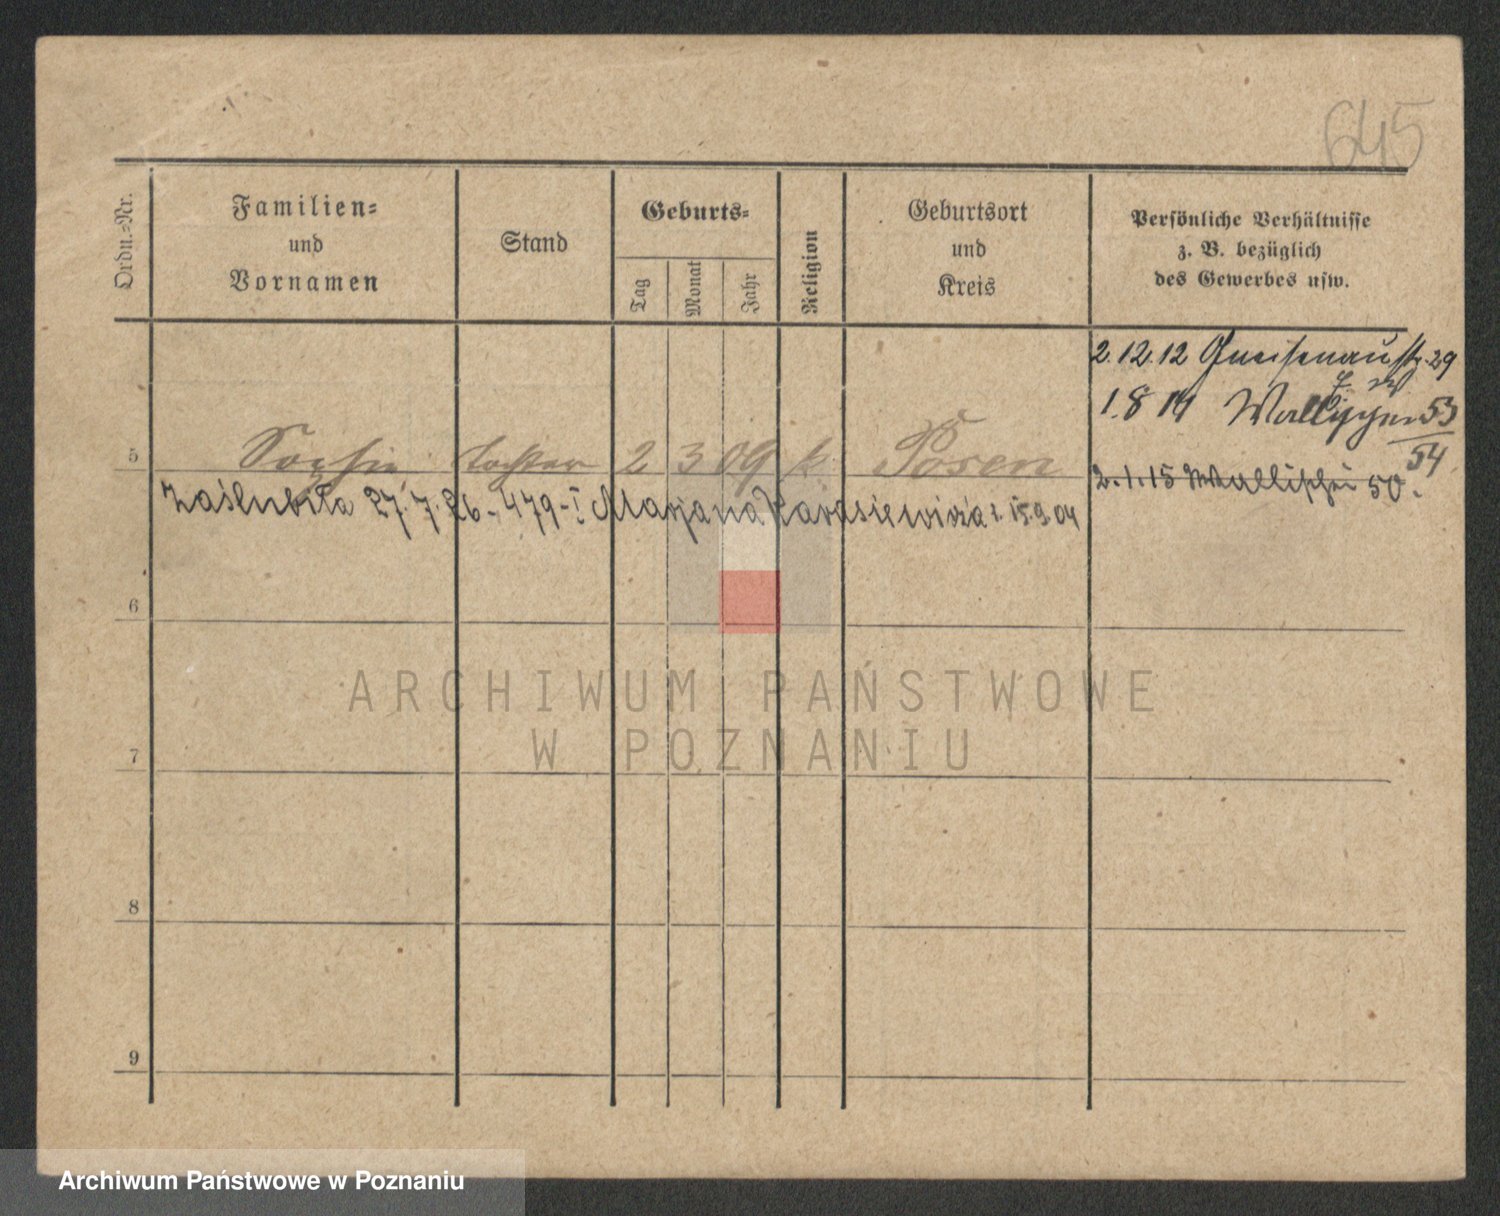 645
Ordn.-Nr.
Familien-
und
Vornamen
Stand
Geburts-
Tag
Monat
Jahr
Religion
Geburtsort
und
Kreis
Persönliche Verhältnisse
z. B. bezüglich
des Gewerbes usw.
2.12.12 Gneisenaustr. 29
1.8 14 53
54
5 Sophie tochter 2 3 09 k. Posen
2.1.15 Wallischei 50.
Zaślubiła 27.7.26 - 479-I Marjana Karasiewicza 15.9.04
6
7
8
9
ARCHIWUM PAŃSTWOWE
W POZNANIU
Archiwum Państwowe w Poznaniu